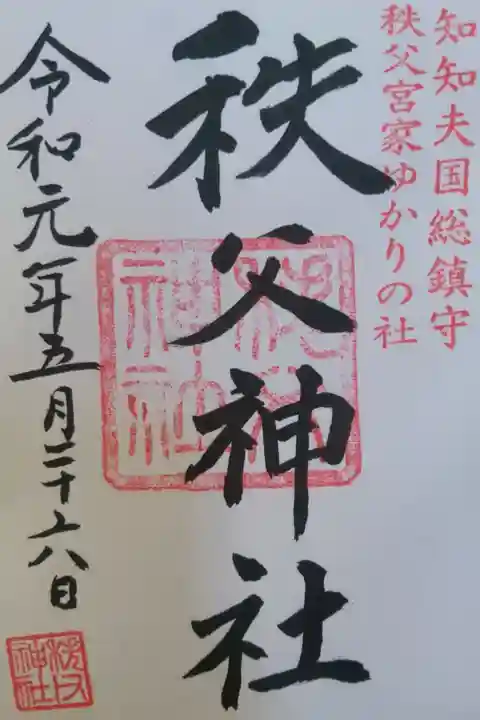 知知夫国総鎮守
秩父宮家ゆかりの社
秩父神社
秩父神社
令和元年五月二十六日
秩父神社